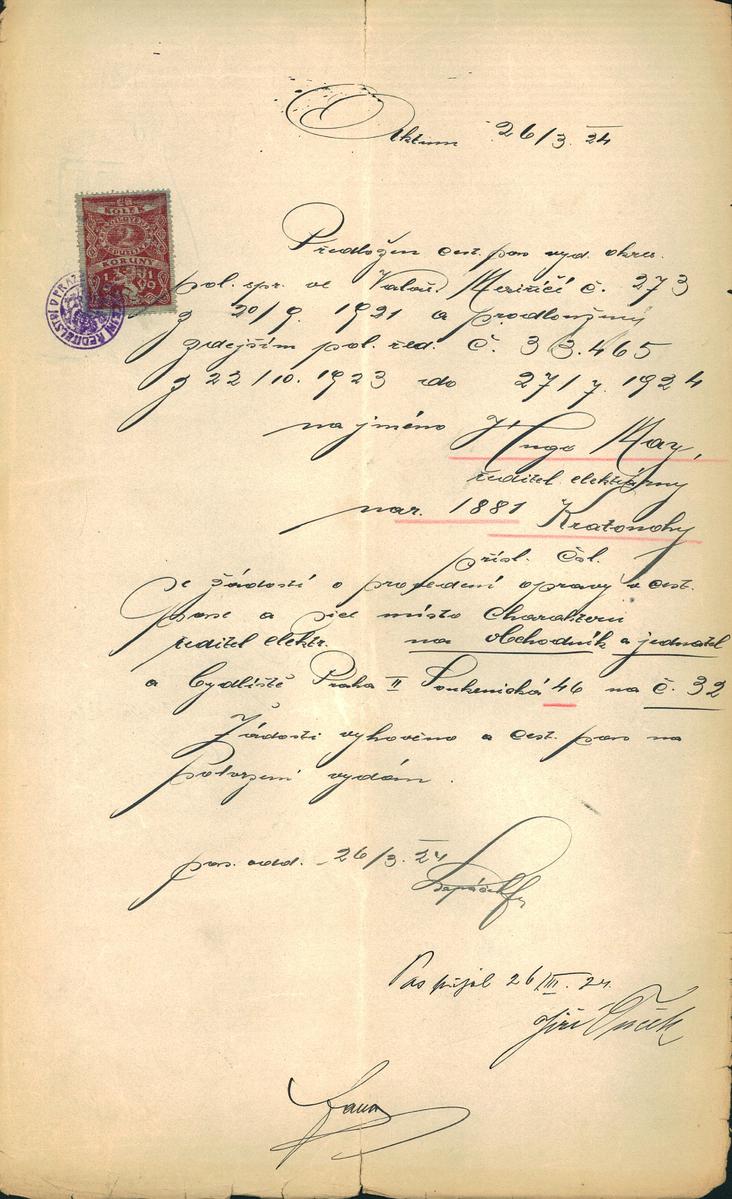 Aktum 26/3. 24
KOLEK
ČESKOSLOVENSKÝ
2
KORUNY
1919
ŘEDITELSTVÍ V PRAZE
Předložen cest. pas vyd. okres.
pol. spr. ve Valaš. Meziříčí č. 273
z 20/9. 1921 a prodloužený
zdejším pol. řed. č. 33.465
z 22/10. 1923 do 27/7. 1924
na jméno Hugo May,
ředitel elektrárny
nar. 1881 Kratonohy
přísl. čsl.
se žádostí o provedení opravy v cest.
pase a sice místo charakteru
ředitel elektr. na obchodník a jednatel
a bydliště Praha II Soukenická 46 na č. 32
Žádosti vyhověno a cest. pas na
potvrzení vydán.
pas. odd. 26/3. 24
Pas přijal 26/III. 24.
Jiří